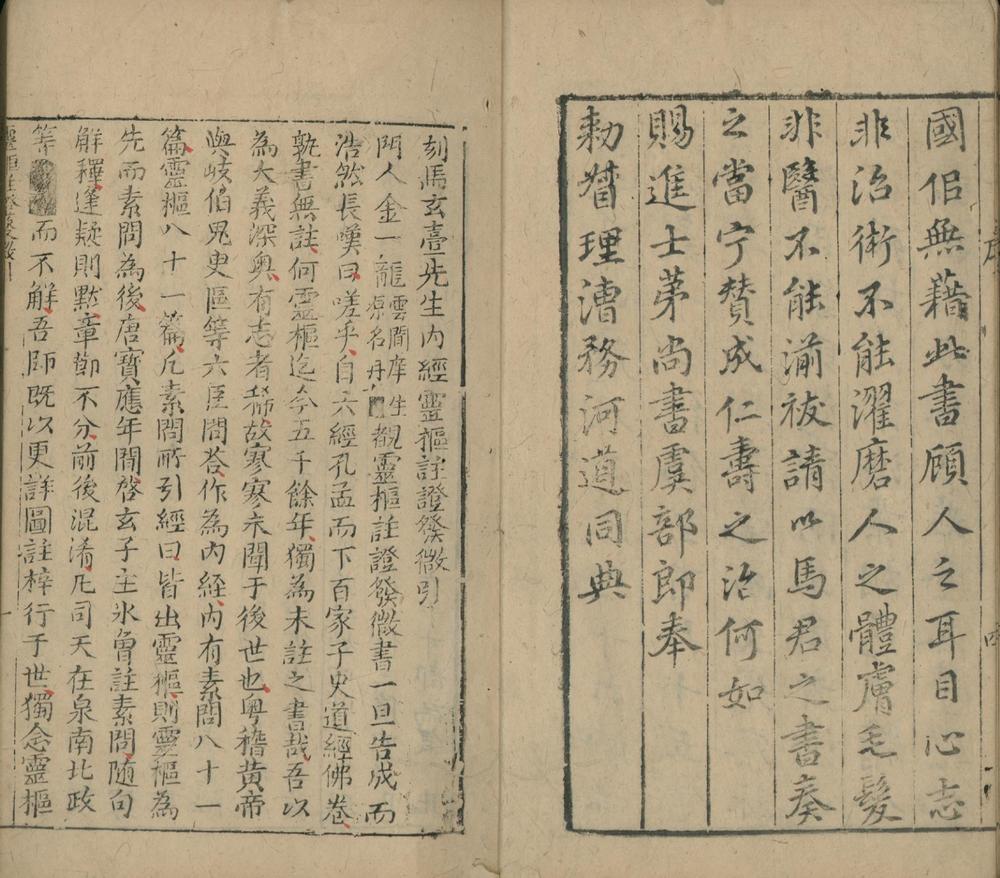 國但無藉此書顧人之耳目心志
非治術不能濯磨人之體膚毛髮
非醫不能湔祓請以馬君之書奏
之當宁贊成仁壽之治何如
賜進士苐尚書虞部郎奉
勑督理漕務河道同典
序
四
刻馬玄臺先生內經靈樞註證發微引
門人金一龍雲間庠生原名丹覩靈樞註證發微書一旦告成而
浩然長嘆曰嗟乎自六經孔孟而下百家子史道經佛卷
孰書無註何靈樞迄今五千餘年獨為未註之書哉吾以
為大義深奧有志者稀故寥寥未聞于後世也粵稽黃帝
與岐伯鬼臾區等六臣問答作為內經內有素問八十一
篇靈樞八十一篇凡素問所引經曰皆出靈樞則靈樞為
先而素問為後唐寶應年間啓玄子王氷曾註素問随句
解釋逢疑則黙章節不分前後混淆凡司天在泉南北政
等而不解吾師既以更詳圖註梓行于世獨念靈樞